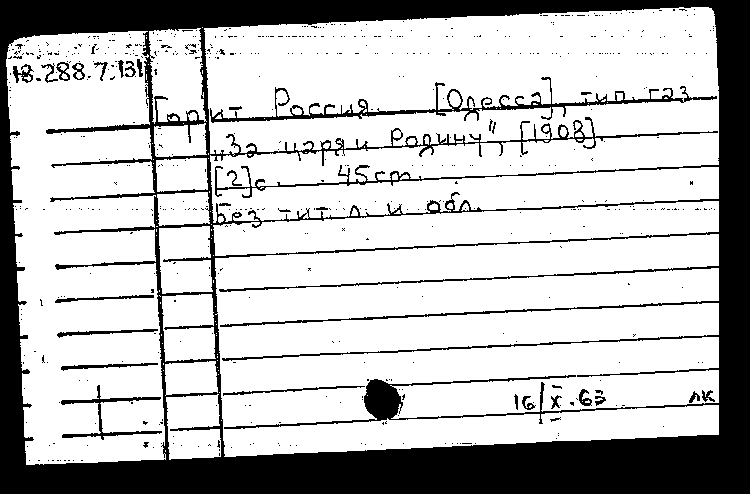 18.288.7.131
Горит Россия. [Одесса], тип. газ.
„За царя и Родину", [1908].
[2]с. 45cm.
Без тит. л. и обл.
16/X.63 лк